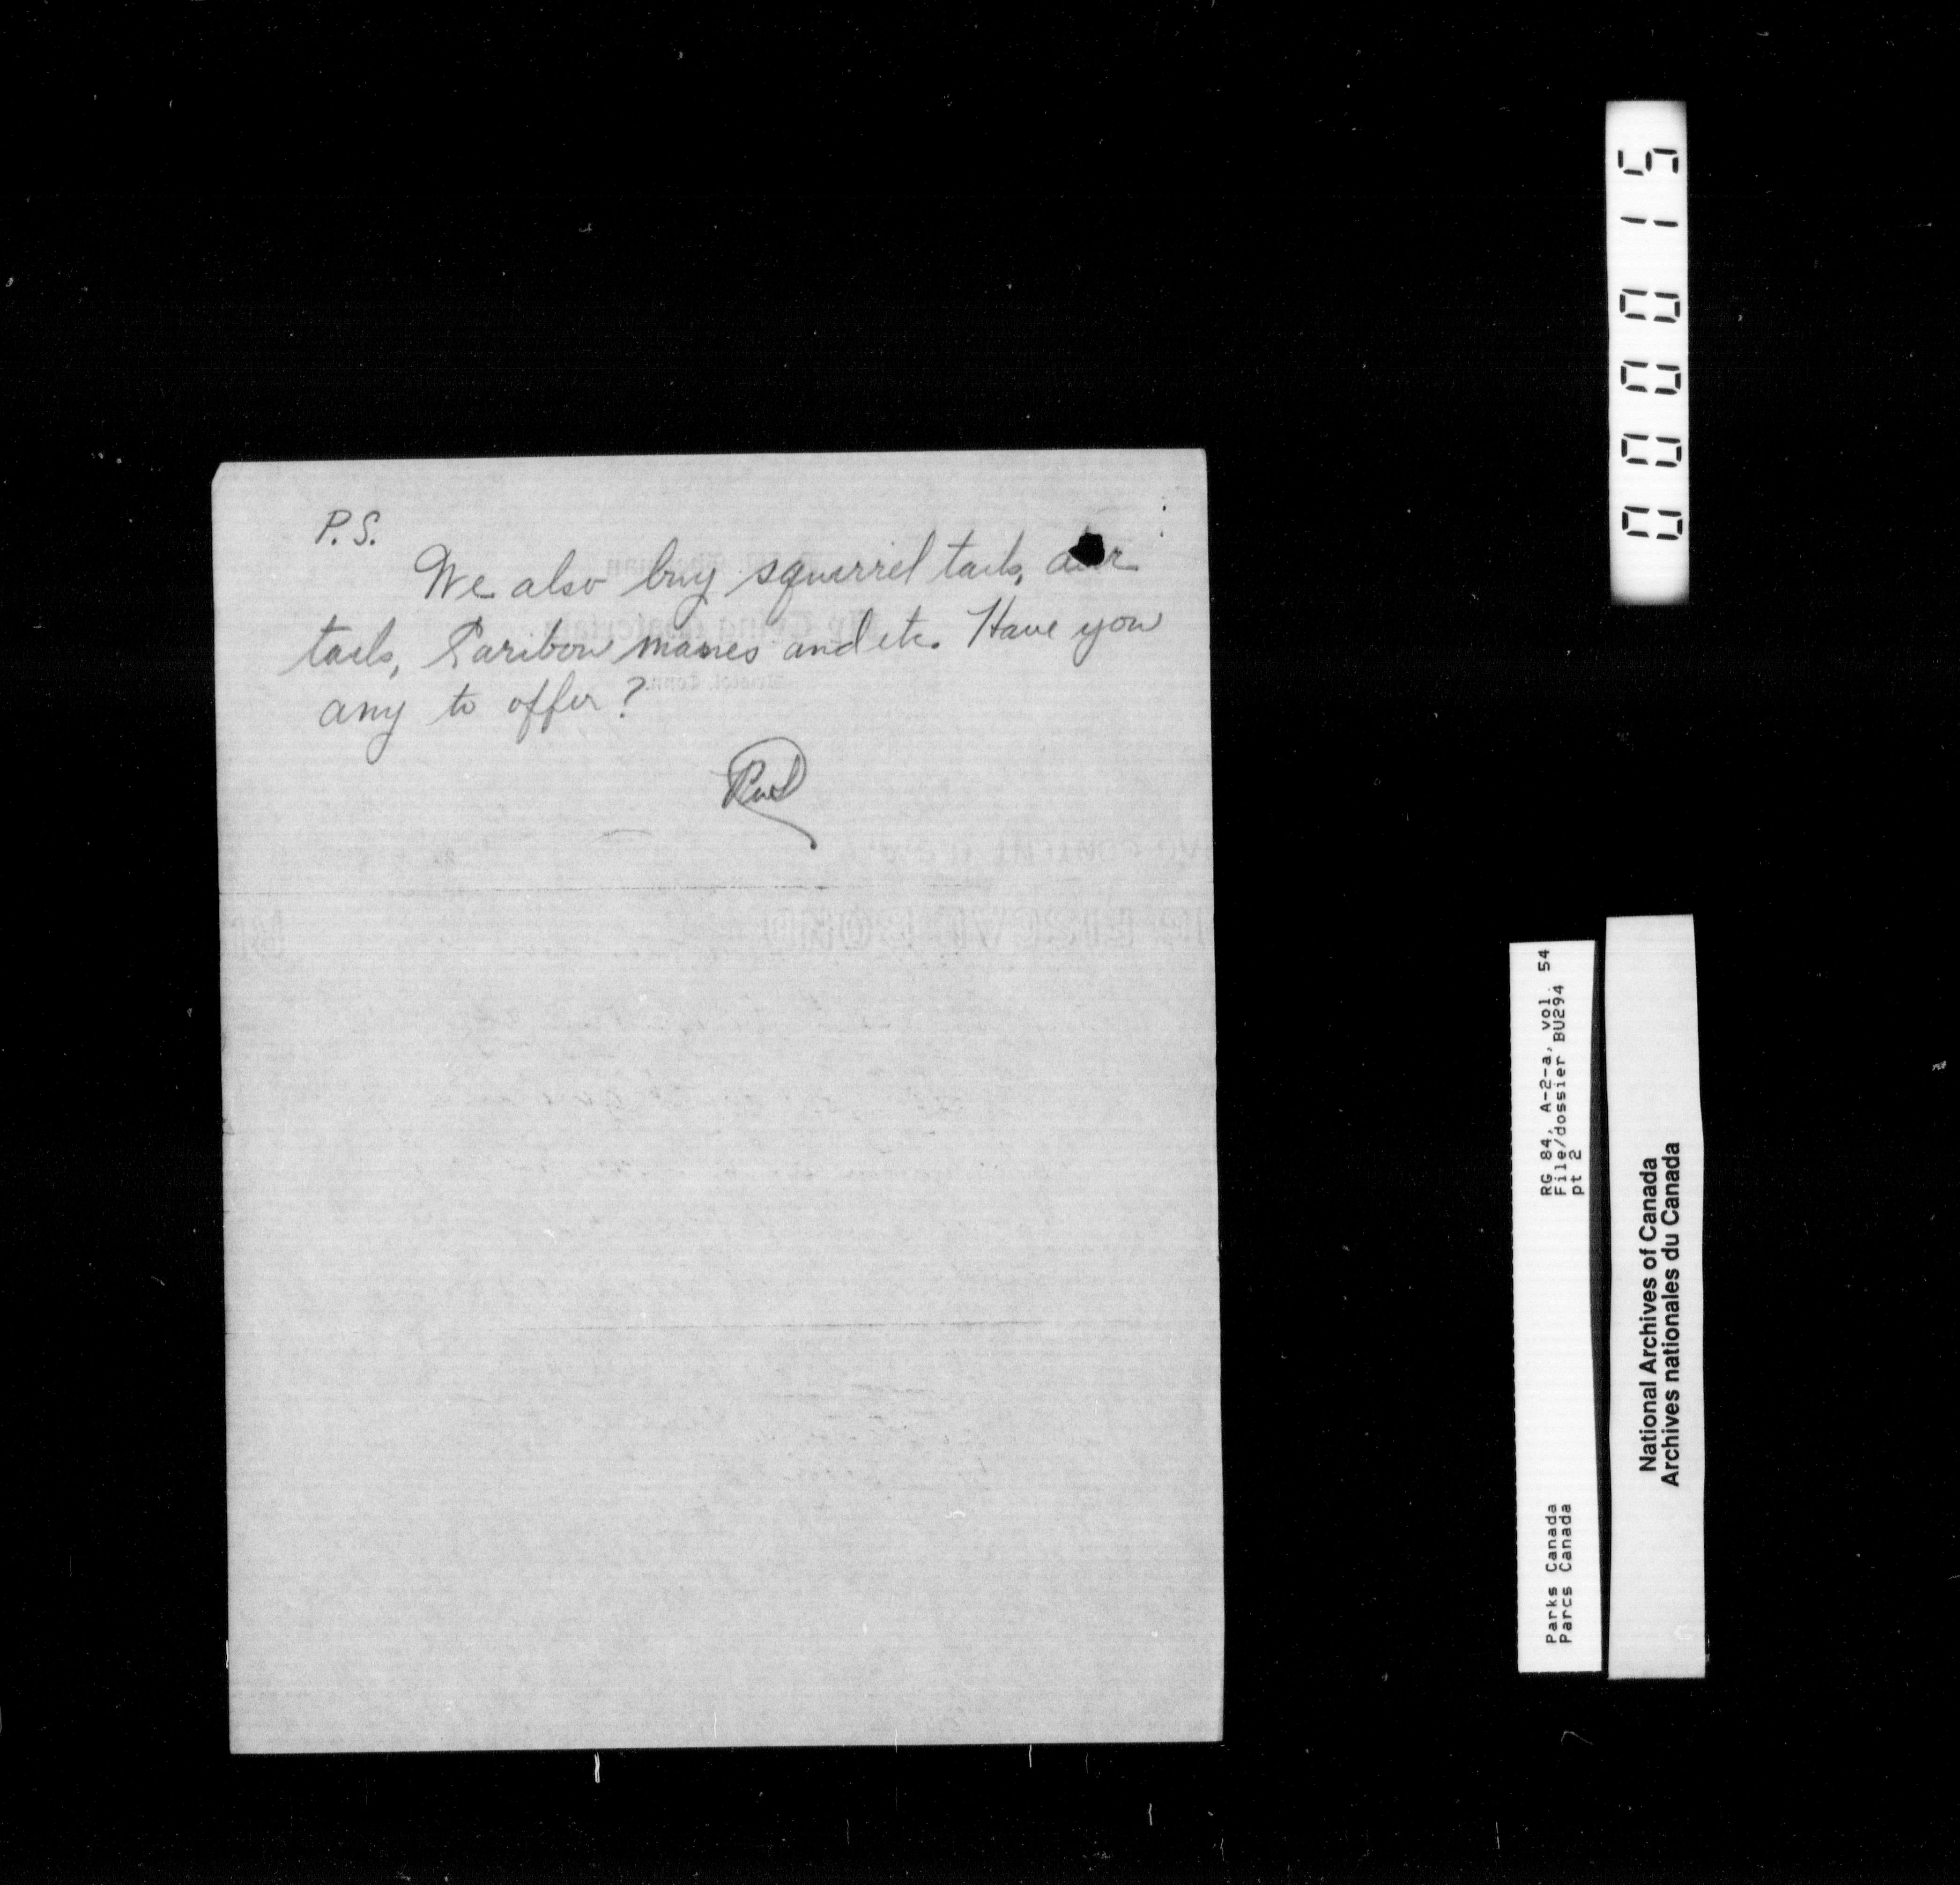 P.S.
We also buy squirrel tails, deer
tails, Caribou manes and etc. Have you
any to offer?
000015
RG 84, A-2-a, vol. 54
File/dossier BU294
pt 2
Parks Canada
Parcs Canada
National Archives of Canada
Archives nationales du Canada